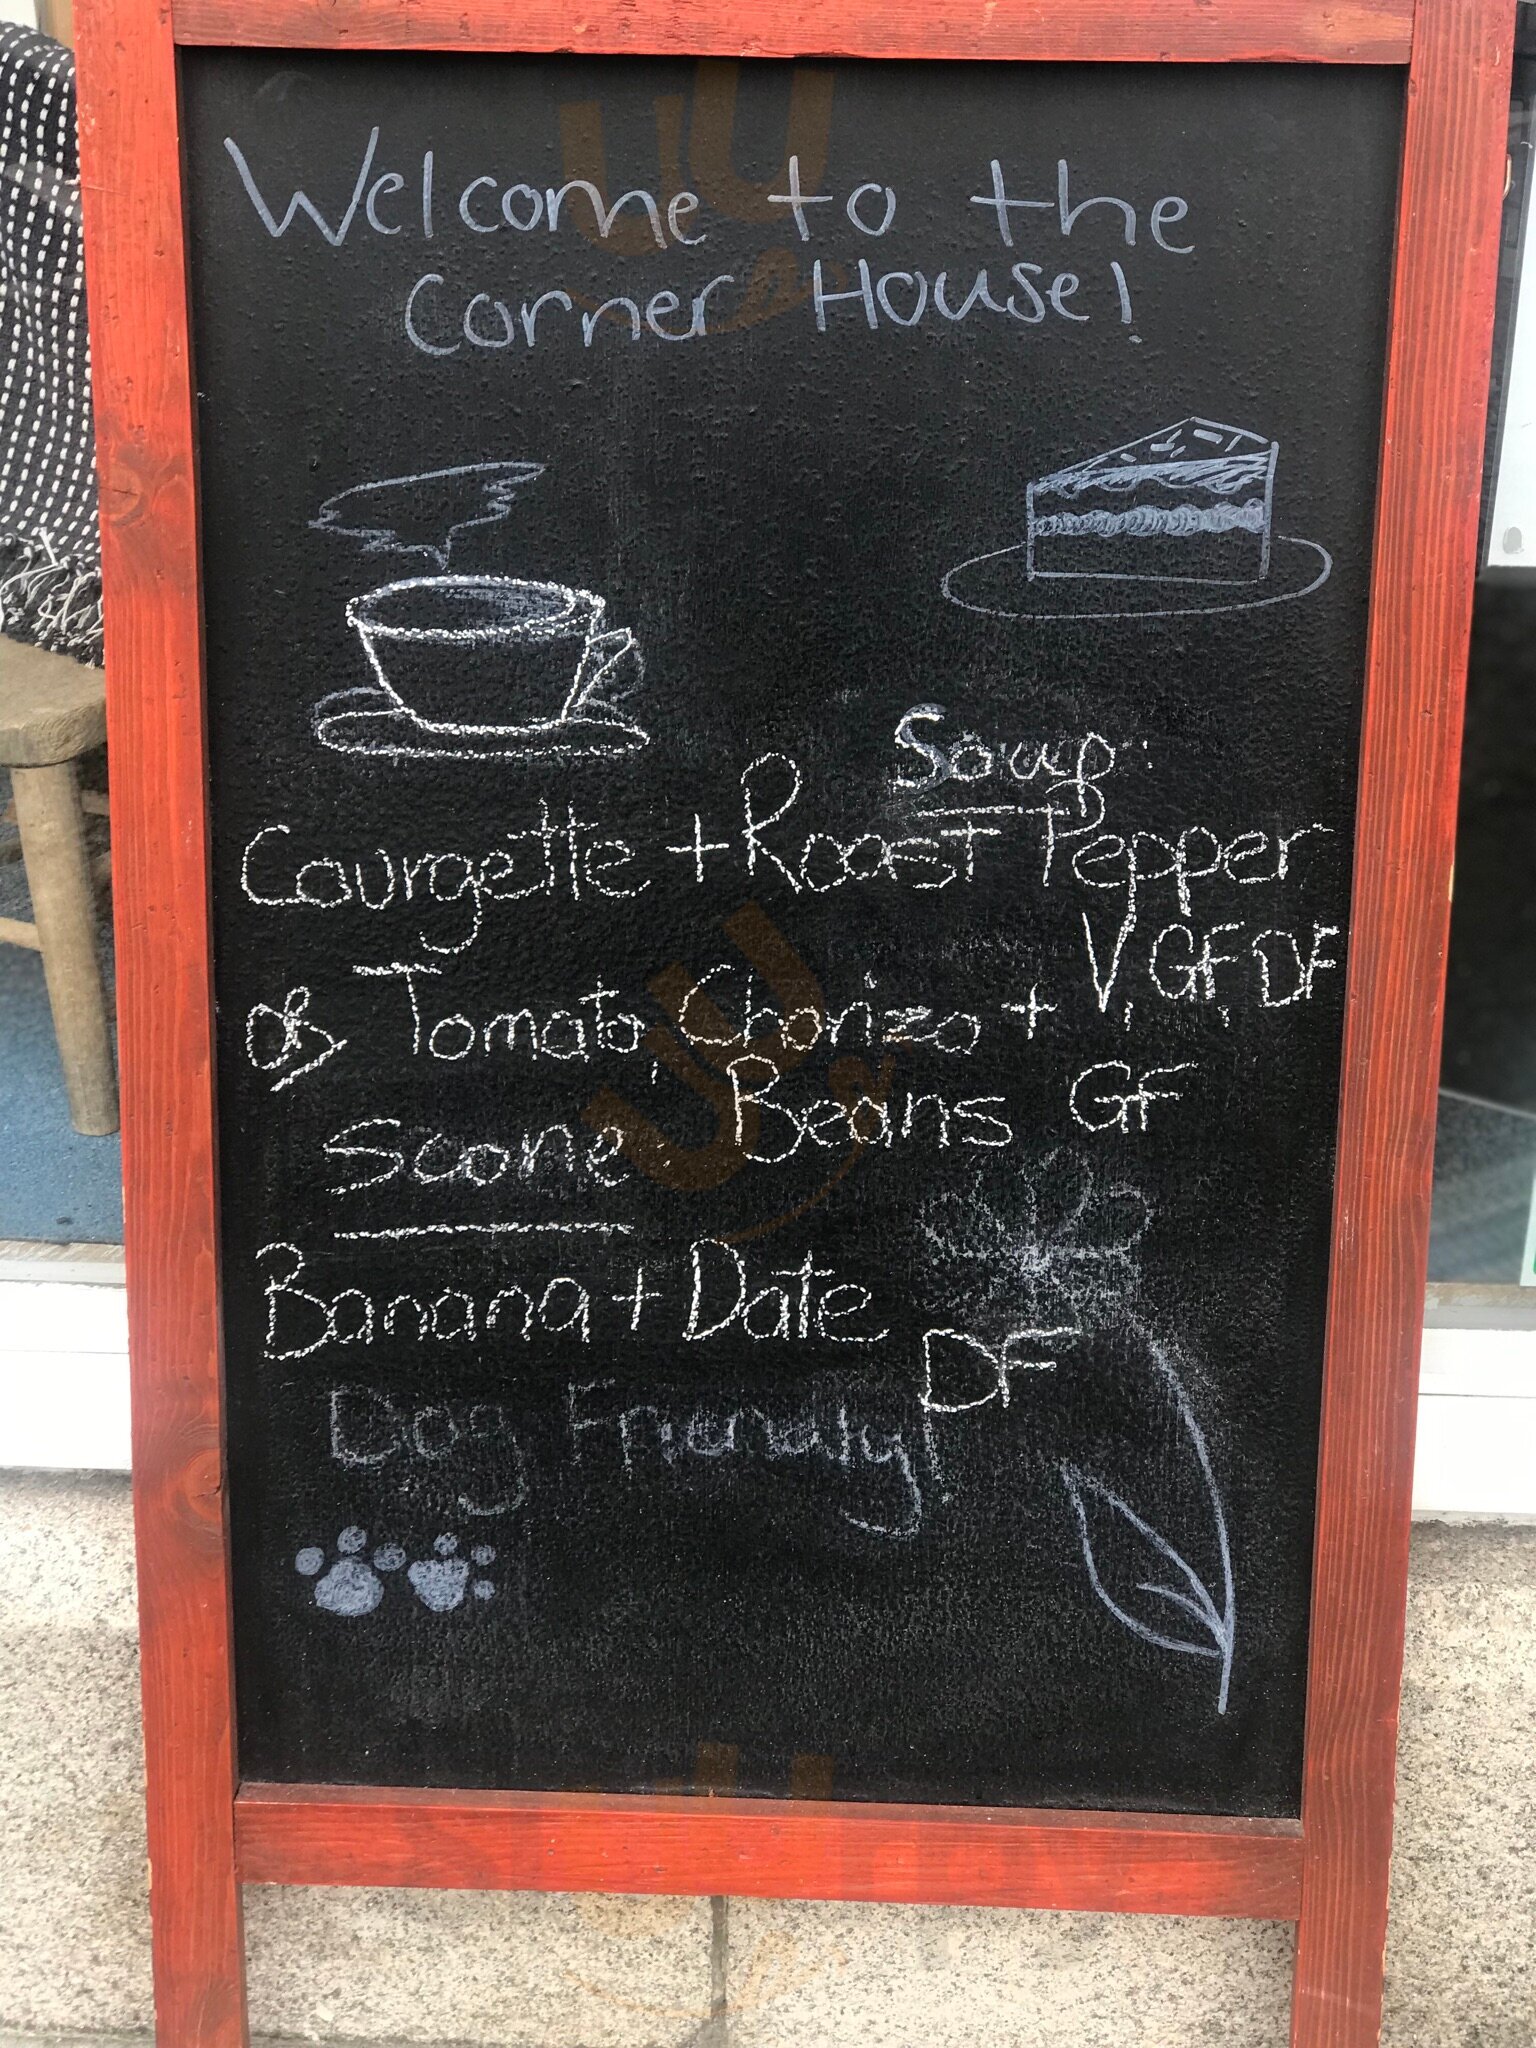 Welcome to the
Corner House!
Soup:
Courgette + Roast Pepper
V, GF, DF
or Tomato, Chorizo +
Beans GF
Scone:
Banana + Date
DF
Dog Friendly!